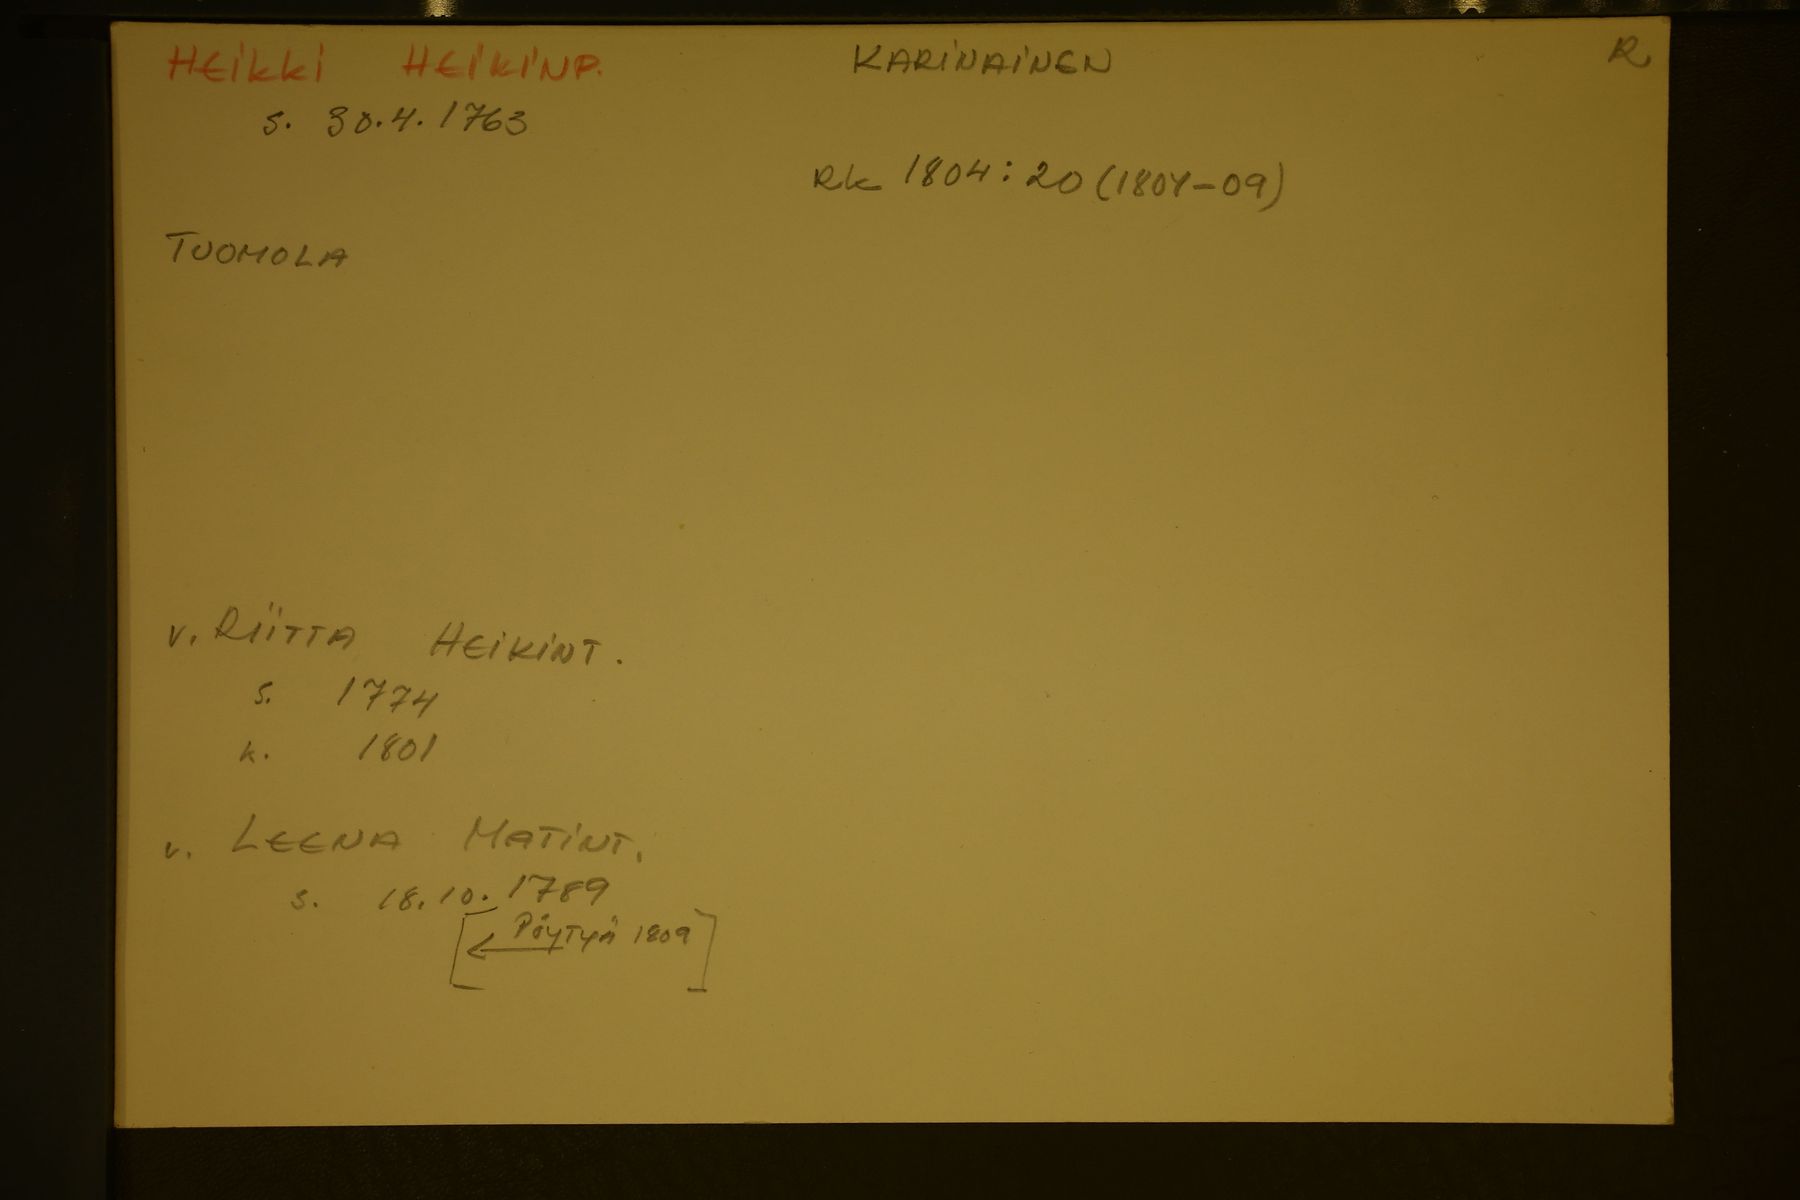 HEIKKI HEIKINP. KARINAINEN R
s. 30.4.1763
RK 1804:20 (1804-09)
TUOMOLA
v. RIITTA HEIKINT.
s. 1774
k. 1801
v. LEENA MATINT.
s. 18.10.1789
[← Pöytyä 1809]